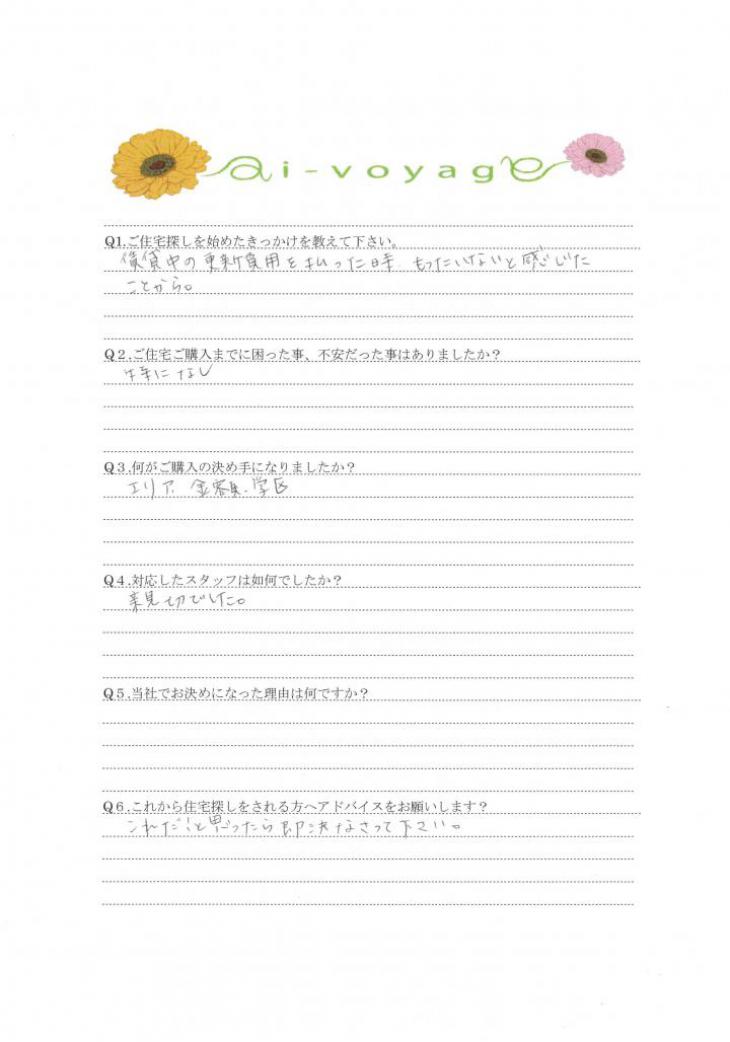 ai-voyage
Q1.ご住宅探しを始めたきっかけを教えて下さい。
賃貸中の更新費用を払った時、もったいないと感じた
ことから。
Q２.ご住宅ご購入までに困った事、不安だった事はありましたか？
特になし
Q３.何がご購入の決め手になりましたか？
エリア、金額、学区
Q４.対応したスタッフは如何でしたか？
親切でした。
Q５.当社でお決めになった理由は何ですか？
Q６.これから住宅探しをされる方へアドバイスをお願いします？
これだ！と思ったら即決なさって下さい。